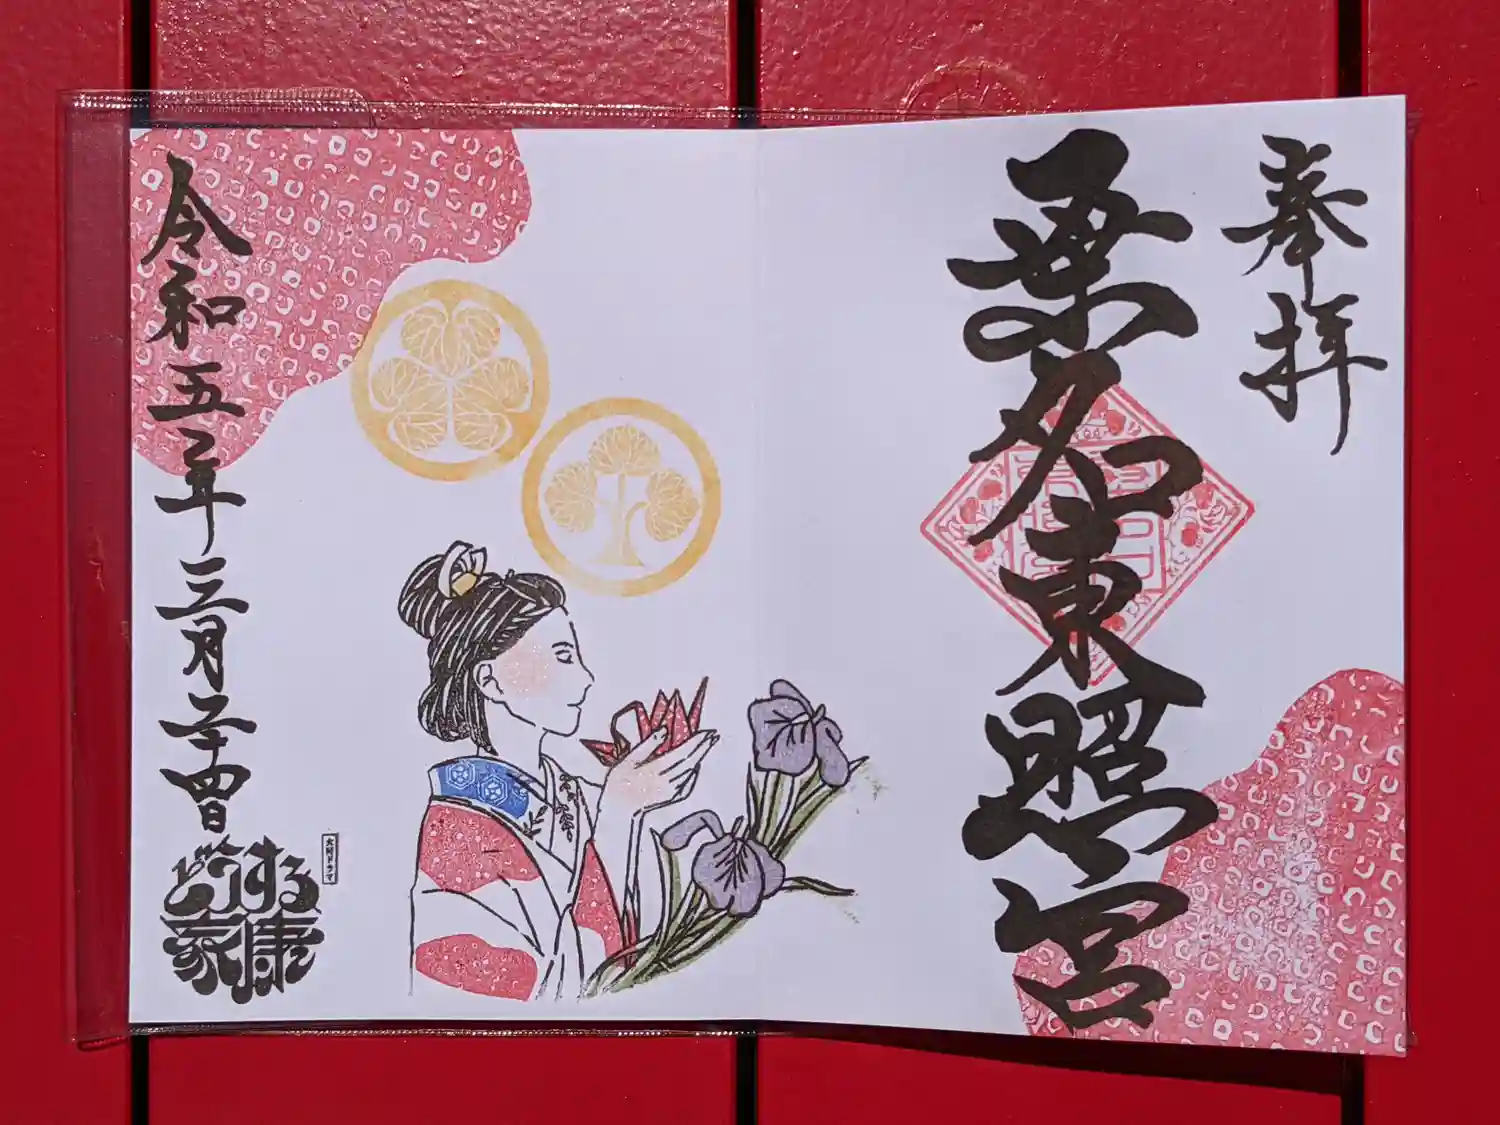 奉拝
桑名東照宮
令和五年三月二十四日
大河ドラマ
どうする
家康